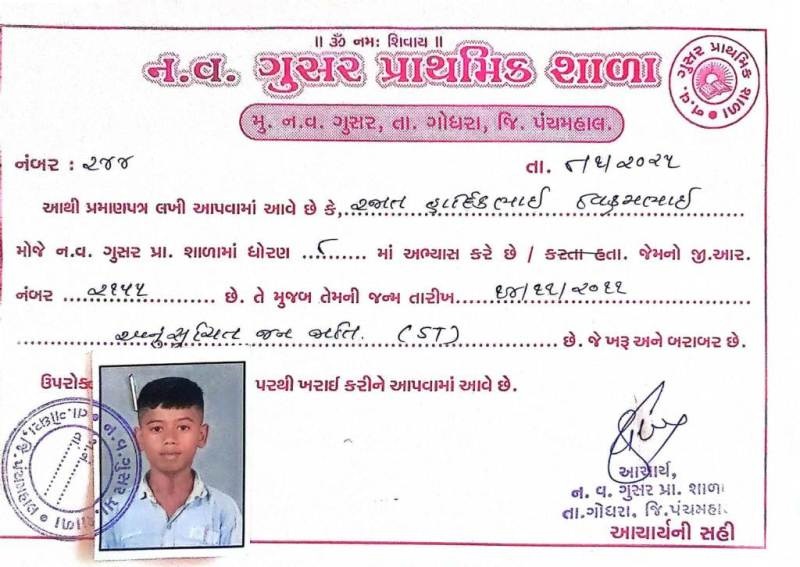 ॥ ૐ નમઃ શિવાય ॥
ન.વ. ગુસર પ્રાથમિક શાળા
ન.વ. ગુસર પ્રાથમિક શાળા
મુ. ન.વ. ગુસર, તા. ગોધરા, જિ. પંચમહાલ.
નંબર : ૨૪૪ તા. ૨૦૨૫
આથી પ્રમાણપત્ર લખી આપવામાં આવે છે કે, હાર્દિકભાઈ
મોજે ન.વ. ગુસર પ્રા. શાળામાં ધોરણ માં અભ્યાસ કરે છે / કરતા હતા. જેમનો જી.આર.
નંબર ૨૧૫૫ છે. તે મુજબ તેમની જન્મ તારીખ ૧૪/૧૧/૨૦૧૧
અનુસૂચિત જન જાતિ. (ST) છે. જે ખરૂ અને બરાબર છે.
ઉપરોક્ત પરથી ખરાઈ કરીને આપવામાં આવે છે.
આચાર્ય,
ન. વ. ગુસર પ્રા. શાળા
તા.ગોધરા, જિ.પંચમહા
આચાર્યની સહી